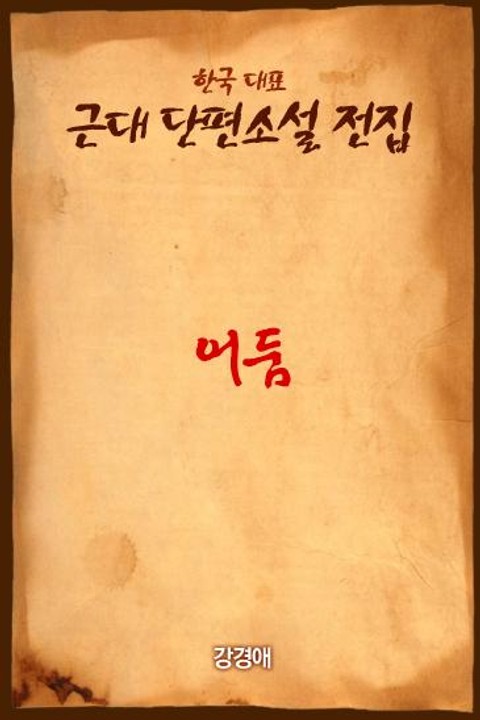 한국 대표
근대 단편소설 전집
어둠
강경애